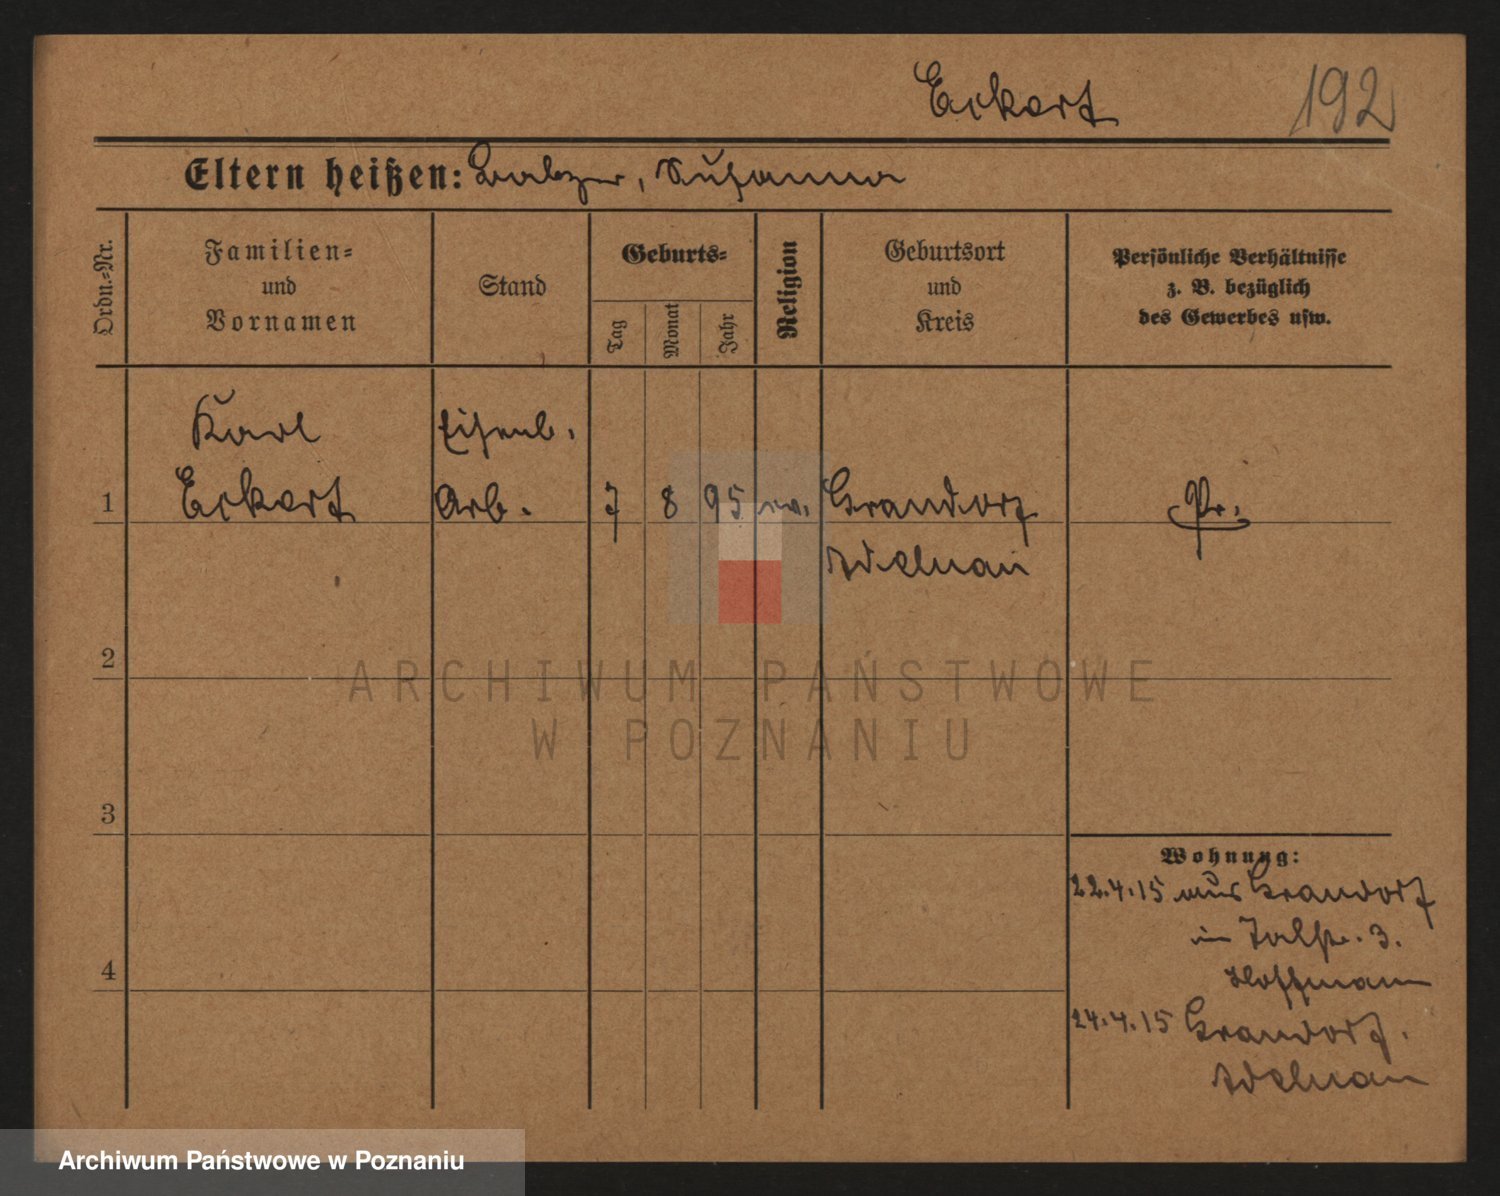 Eckert
192
Eltern heißen: Susanna
Ordn.-Nr.
Familien-
und
Vornamen
Stand
Geburts-
Tag
Monat
Jahr
Religion
Geburtsort
und
Kreis
Persönliche Verhältnisse
z. B. bezüglich
des Gewerbes usw.
Karl
Eisenb.
1
Eckert
Arb.
7
8
95
ev.
Grandorf
Adelnau
Pr.
2
ARCHIWUM PAŃSTWOWE
W POZNANIU
3
Wohnung:
22.4.15 aus Grandorf
in 3.
Hoffmann
4
24.4.15 Grandorf.
Adelnau
Archiwum Państwowe w Poznaniu